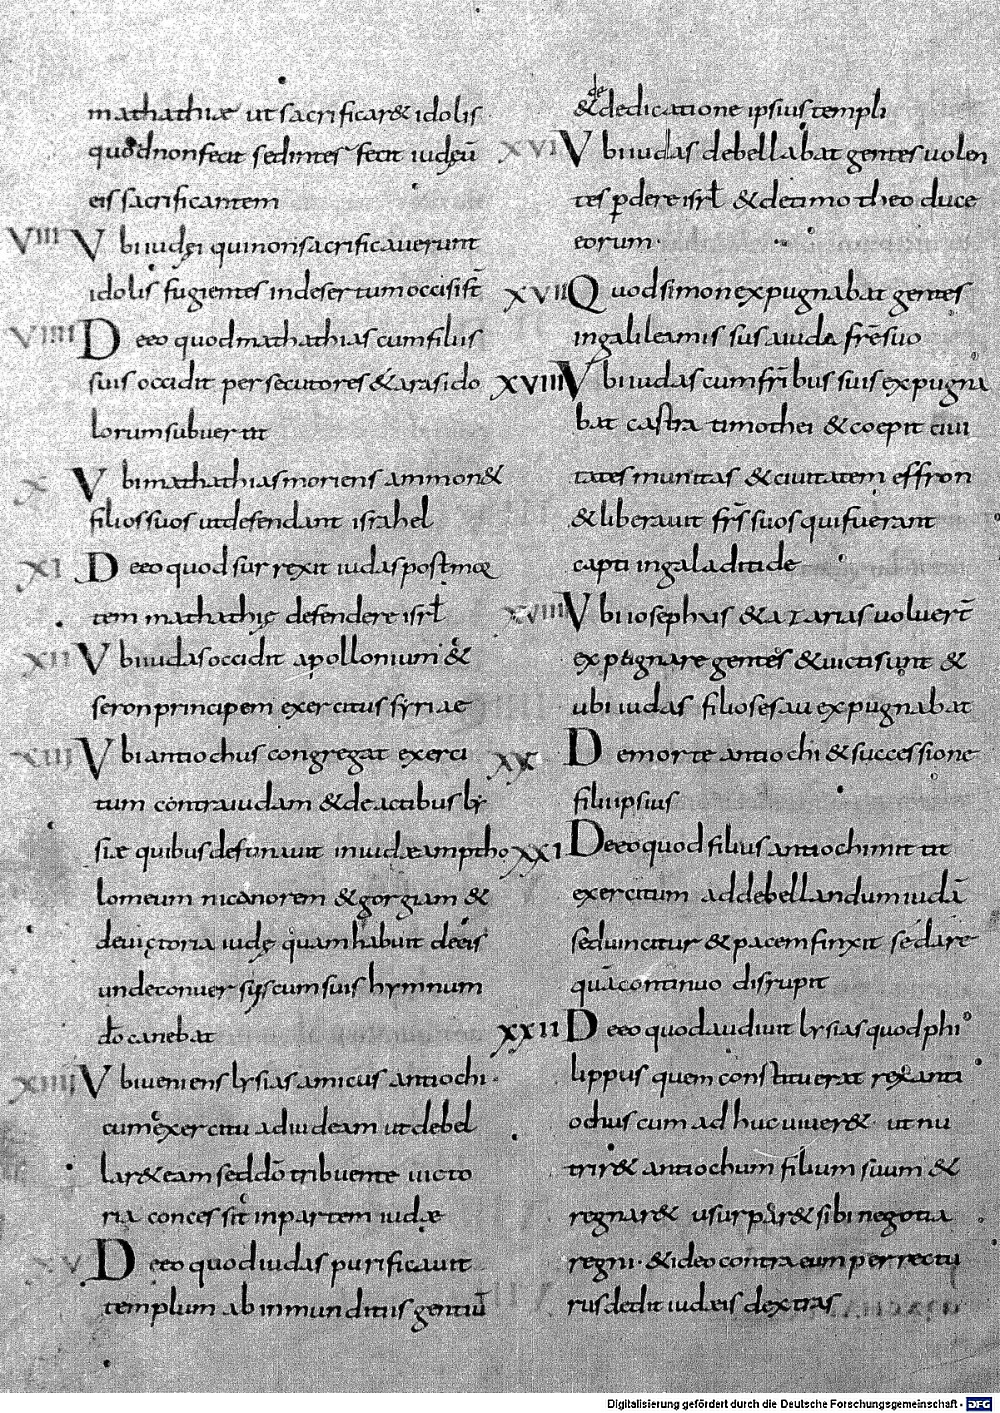 mathathiæ ut sacrificar& idolis
quod non fecit sed interfecit iudeū
eis sacrificantem
VIII Ubi iudęi qui non sacrificauerunt
idolis fugientes in desertum occisi st̄
VIIII De eo quod mathathias cum filiis
suis occidit persecutores & aras ido
lorum subuertit
X Ubi mathathias moriens ammon&
filios suos ut defendant israhel
XI De eo quod surrexit iudas post mor
tem mathathię defendere isrł
XII Ubi iudas occidit apollonium &
seron principem exercitus syriae
XIII Ubi antiochus congregat exerci
tum contra iudam & de actibus ly
siæ quibus destinauit in iudæam ptho
lomeum nicanorem & gorgiam &
de uictoria iudę quam habuit de eis
unde conuersus cum suis hymnum
do canebat
XIIII Ubi ueniens lysias amicus antiochi
cum exercitu ad iudeam ut debel
lar& eam sed dō tribuente uicto
ria concessit in partem iudæ
XV De eo quod iudas purificauit
templum ab inmunditiis gentiū
& de dedicatione ipsius templi
XVI Ubi iudas debellabat gentes uolen
tes ꝑdere isrł & de timotheo duce
eorum
XVII Quod simon expugnabat gentes
in galilea missus a iuda fr̄e suo
XVIII Ubi iudas cum fr̄ibus suis expugna
bat castra timothei & coepit ciui
tates munitas & ciuitatem effron
& liberauit fr̄s suos qui fuerant
capti in galaditide
XVIIII Ubi iosephus & azarias uoluer̄t
expugnare gentes & uicti sunt &
ubi iudas filios esau expugnabat
XX De morte antiochi & successione
filii ipsius
XXI De eo quod filius antiochi mittit
exercitum ad debellandum iudā
sed uincitur & pacem finxit se dare
quā continuo disrupit
XXII De eo quod audiuit lysias quod phi
lippus quem constituerat rex anti
ochus cum adhuc uiuer& ut nu
trir& antiochum filium suum &
regnar& usurpar& sibi negotia
regni · & ideo contra eum perrectu
rus dedit iudæis dextras
Digitalisierung gefördert durch die Deutsche Forschungsgemeinschaft - DFG